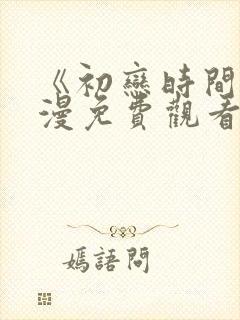 《初戀時間
漫免費觀看
嫣語問